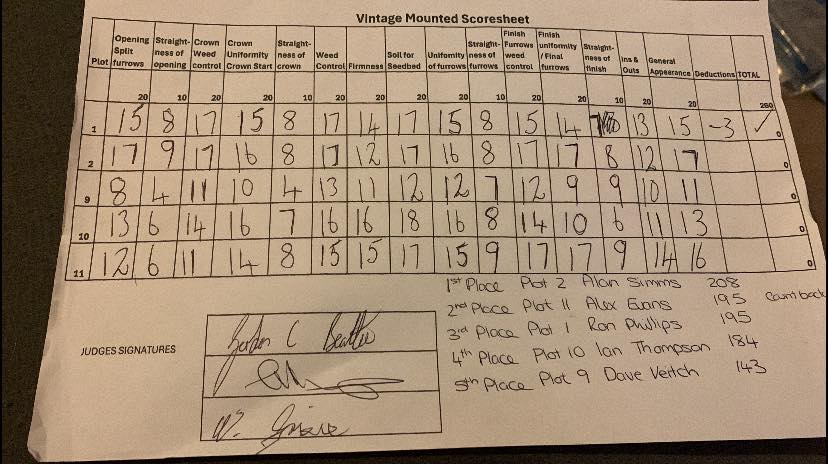 Vintage Mounted Scoresheet
Plot Opening Split furrows Straight-ness of opening Crown Weed control Crown Uniformity Crown Start Straight-ness of crown Weed Control Firmness Soil for Seedbed Uniformity of furrows Straight-ness of furrows Finish Furrows weed control Finish uniformity / Final furrows Straight-ness of finish Ins & Outs General Appearance Deductions TOTAL
20 10 20 20 10 20 20 20 20 10 20 20 10 20 20 260
1 15 8 17 15 8 17 14 17 15 8 15 14 13 15 -3 ✓ 0
2 17 9 17 16 8 17 12 17 16 8 17 17 8 12 17 0
9 8 4 11 10 4 13 11 12 12 7 12 9 9 10 11 0
10 13 6 14 16 7 16 16 18 16 8 14 10 6 11 13 0
11 12 6 11 14 8 15 15 17 15 9 17 17 9 14 16 0
1st Place Plot 2 Alan Simms 208
2nd Place Plot 11 Alex Evans 195 Countback
3rd Place Plot 1 Ron Phillips 195
4th Place Plot 10 Ian Thompson 184
5th Place Plot 9 Dave Veitch 143
JUDGES SIGNATURES